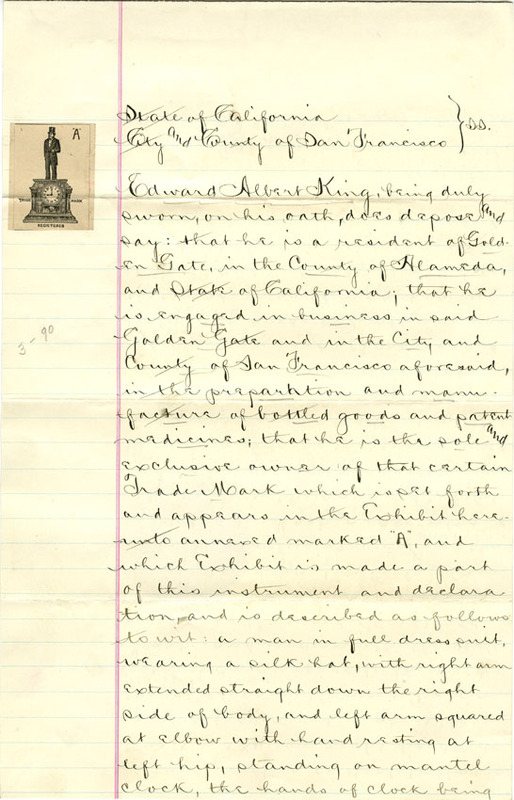 State of California
City and County of San Francisco } SS.
"A"
TRADE MARK
REGISTERED
Edward Albert King, being duly
sworn, on his oath, does depose and
say: that he is a resident of Gold-
en Gate, in the County of Alameda,
and State of California; that he
is engaged in business in said
3-90
Golden Gate and in the City and
County of San Francisco aforesaid,
in the preparation and manu-
facture of bottled goods and patent
medicines; that he is the sole and
exclusive owner of that certain
Trade Mark which is set forth
and appears in the Exhibit here-
unto annexed marked "A", and
which Exhibit is made a part
of this instrument and declara
tion, and is described as follows
to wit: a man in full dress suit,
wearing a silk hat, with right arm
extended straight down the right
side of body, and left arm squared
at elbow with hand resting at
left hip, standing on mantel
clock, the hands of clock being